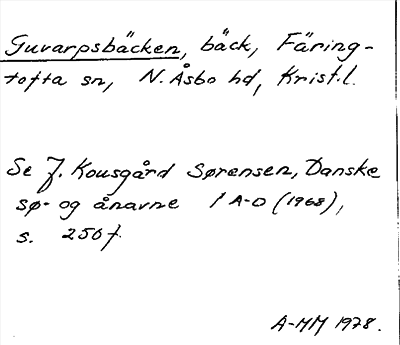 Guvarpsbäcken, bäck, Färing-
tofta sn, N. Åsbo hd, Krist.l.
Se J. Kousgård Sørensen, Danske
sø- og ånavne 1 A-D (1968),
s. 250 f.
A-MM 1978.